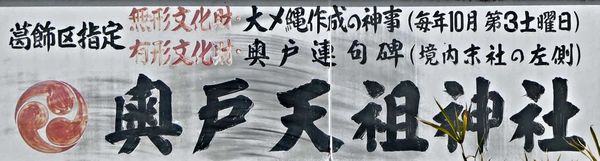 葛飾区指定
無形文化財・大〆縄作成の神事（毎年10月第3土曜日）
有形文化財・奥戸連句碑（境内末社の左側）
奥戸天祖神社